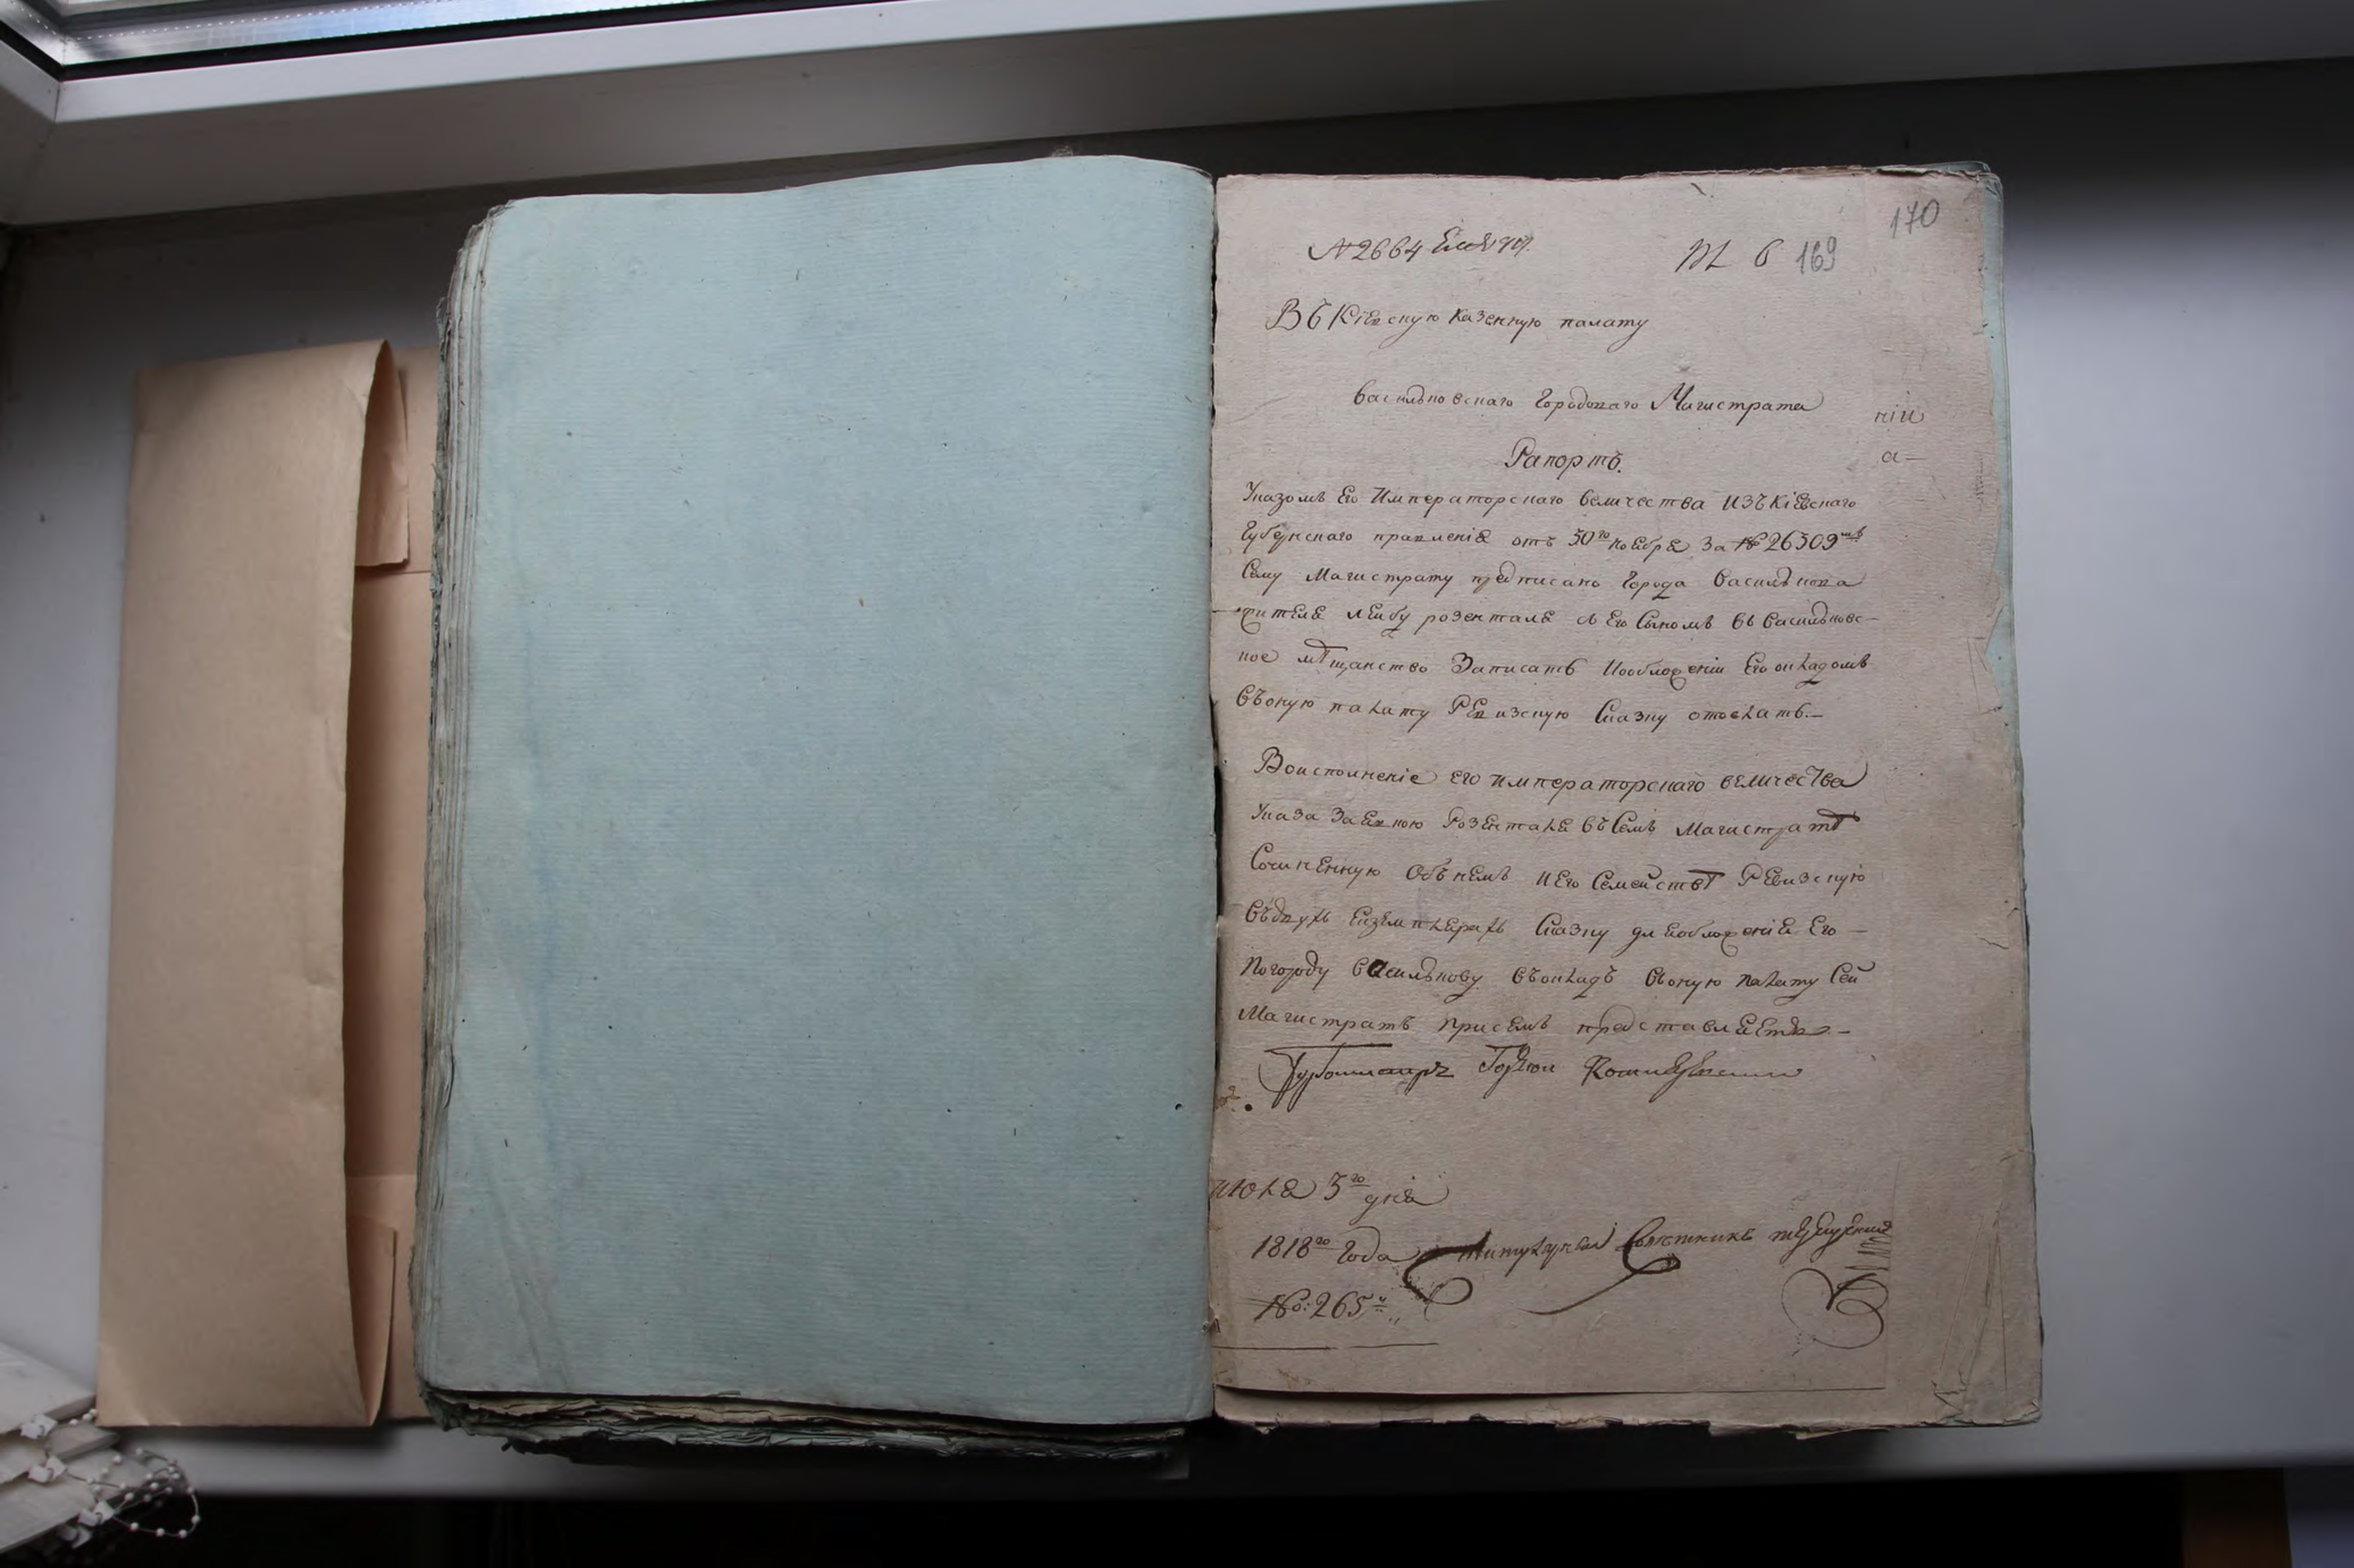 170
№ 2664
169
Въ Кіевскую казенную палату
васильковскаго городоваго Магистрата
ніи
Рапортъ.
а—
Указомъ Его Императорскаго величества изъ кіевскаго
Губернскаго правленія отъ 30го ноября за № 26309мъ
Сему Магистрату предписано города василькова
жителя лейбу розенталя съ Его Сыномъ въ васильковс-
кое мѣщанство записать и о обложеніи Его окладомъ
въ оную палату Ревизскую Сказку отослать.—
Во исполненіе его императорскаго величества
указа за явкою Розенталя въ Семъ Магистратѣ
Сочиненную объ немъ и Его Семействѣ Ревизскую
въ двухъ екземплярахъ Сказку для обложенія Его —
По городу василькову въ окладъ въ оную палату Сей
Магистратъ при семъ представляетъ.—
июля 3го дня
1818го года титулярный Советникъ
№: 265й